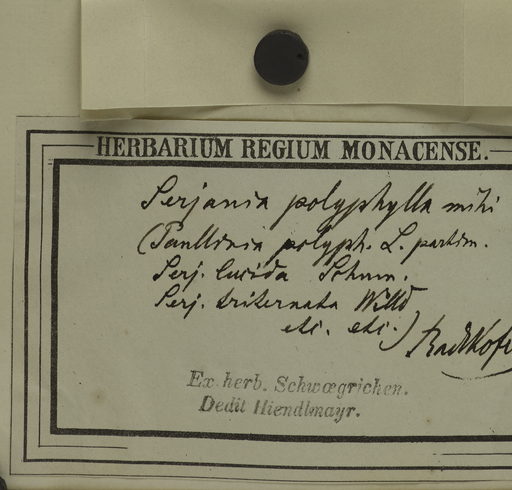 HERBARIUM REGIUM MONACENSE.
Serjania polyphylla mihi
(Paullinia polyph. L. partim.
Serj. lucida Schum.
Serj. triternata Willd
etc. etc.)
Radlkofer
Ex herb. Schwœgrichen.
Dedit Hiendlmayr.